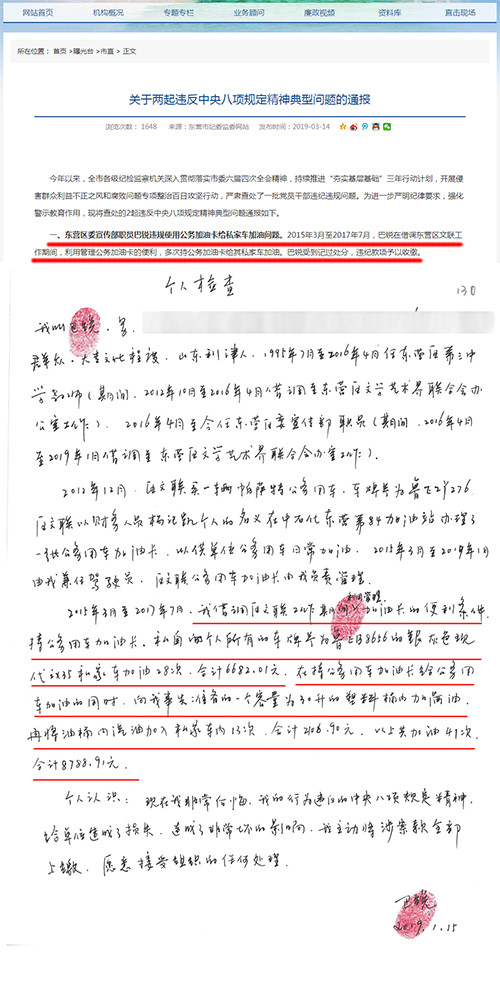 网站首页 机构概况 专题专栏 业务顾问 廉政视频 资料库 直击现场
所在位置： 首页 >曝光台 >市直 > 正文
关于两起违反中央八项规定精神典型问题的通报
浏览次数： 1648 来源：东营市纪委监委网站 发布时间：2019-03-14
今年以来，全市各级纪检监察机关深入贯彻落实市委六届四次全会精神，持续推进“夯实基层基础”三年行动计划，开展侵
害群众利益不正之风和腐败问题专项整治百日攻坚行动，严肃查处了一批党员干部违纪违规问题。为进一步严明纪律要求，强化
警示教育作用，现将查处的2起违反中央八项规定精神典型问题通报如下。
一、东营区委宣传部职员巴锐违规使用公务加油卡给私家车加油问题。2015年3月至2017年7月，巴锐在借调东营区文联工
作期间，利用管理公务加油卡的便利，多次持公务加油卡给其私家车加油。巴锐受到记过处分，违纪款项予以收缴。
个人检查 130
我叫巴锐，男，
群众，大专文化程度，山东利津人，1995年7月至2016年4月任东营区第三中
学教师（期间，2012年10月至2016年4月借调至东营区文学艺术界联合会办
公室工作），2016年4月至今任东营区委宣传部职员（期间，2016年4月
至2019年1月借调至东营区文学艺术界联合会办公室工作）。
2012年12月，区文联系一辆帕萨特公务用车，车牌号为鲁EZY276
区文联以财务人员 个人的名义在中石化东营第84加油站办理了
一张公务用车加油卡，以供单位公务用车日常加油，2013年3月至2019年1月
由我兼任驾驶员，区文联公务用车加油卡由我负责管理。
2015年3月至2017年7月，我借调区文联工作期间利用管理加油卡的便利条件，
持公务用车加油卡，私自给个人所有的车牌号为鲁EB8656的银灰色现
代ix35私家车加油28次，合计6682.01元，在持公务用车加油卡给公务用
车加油的同时，向我事先准备的一个容量为30升的塑料桶内加满油，
再将油桶内汽油加入私家车内13次，合计2106.90元，以上共加油41次，
合计8788.91元。
个人认识：现在我非常后悔，我的行为违反的中央八项规定精神，
给单位造成了损失，造成了非常坏的影响，我主动将涉案款全部
上缴，愿意接受组织的任何处理。
巴锐
2019.1.15